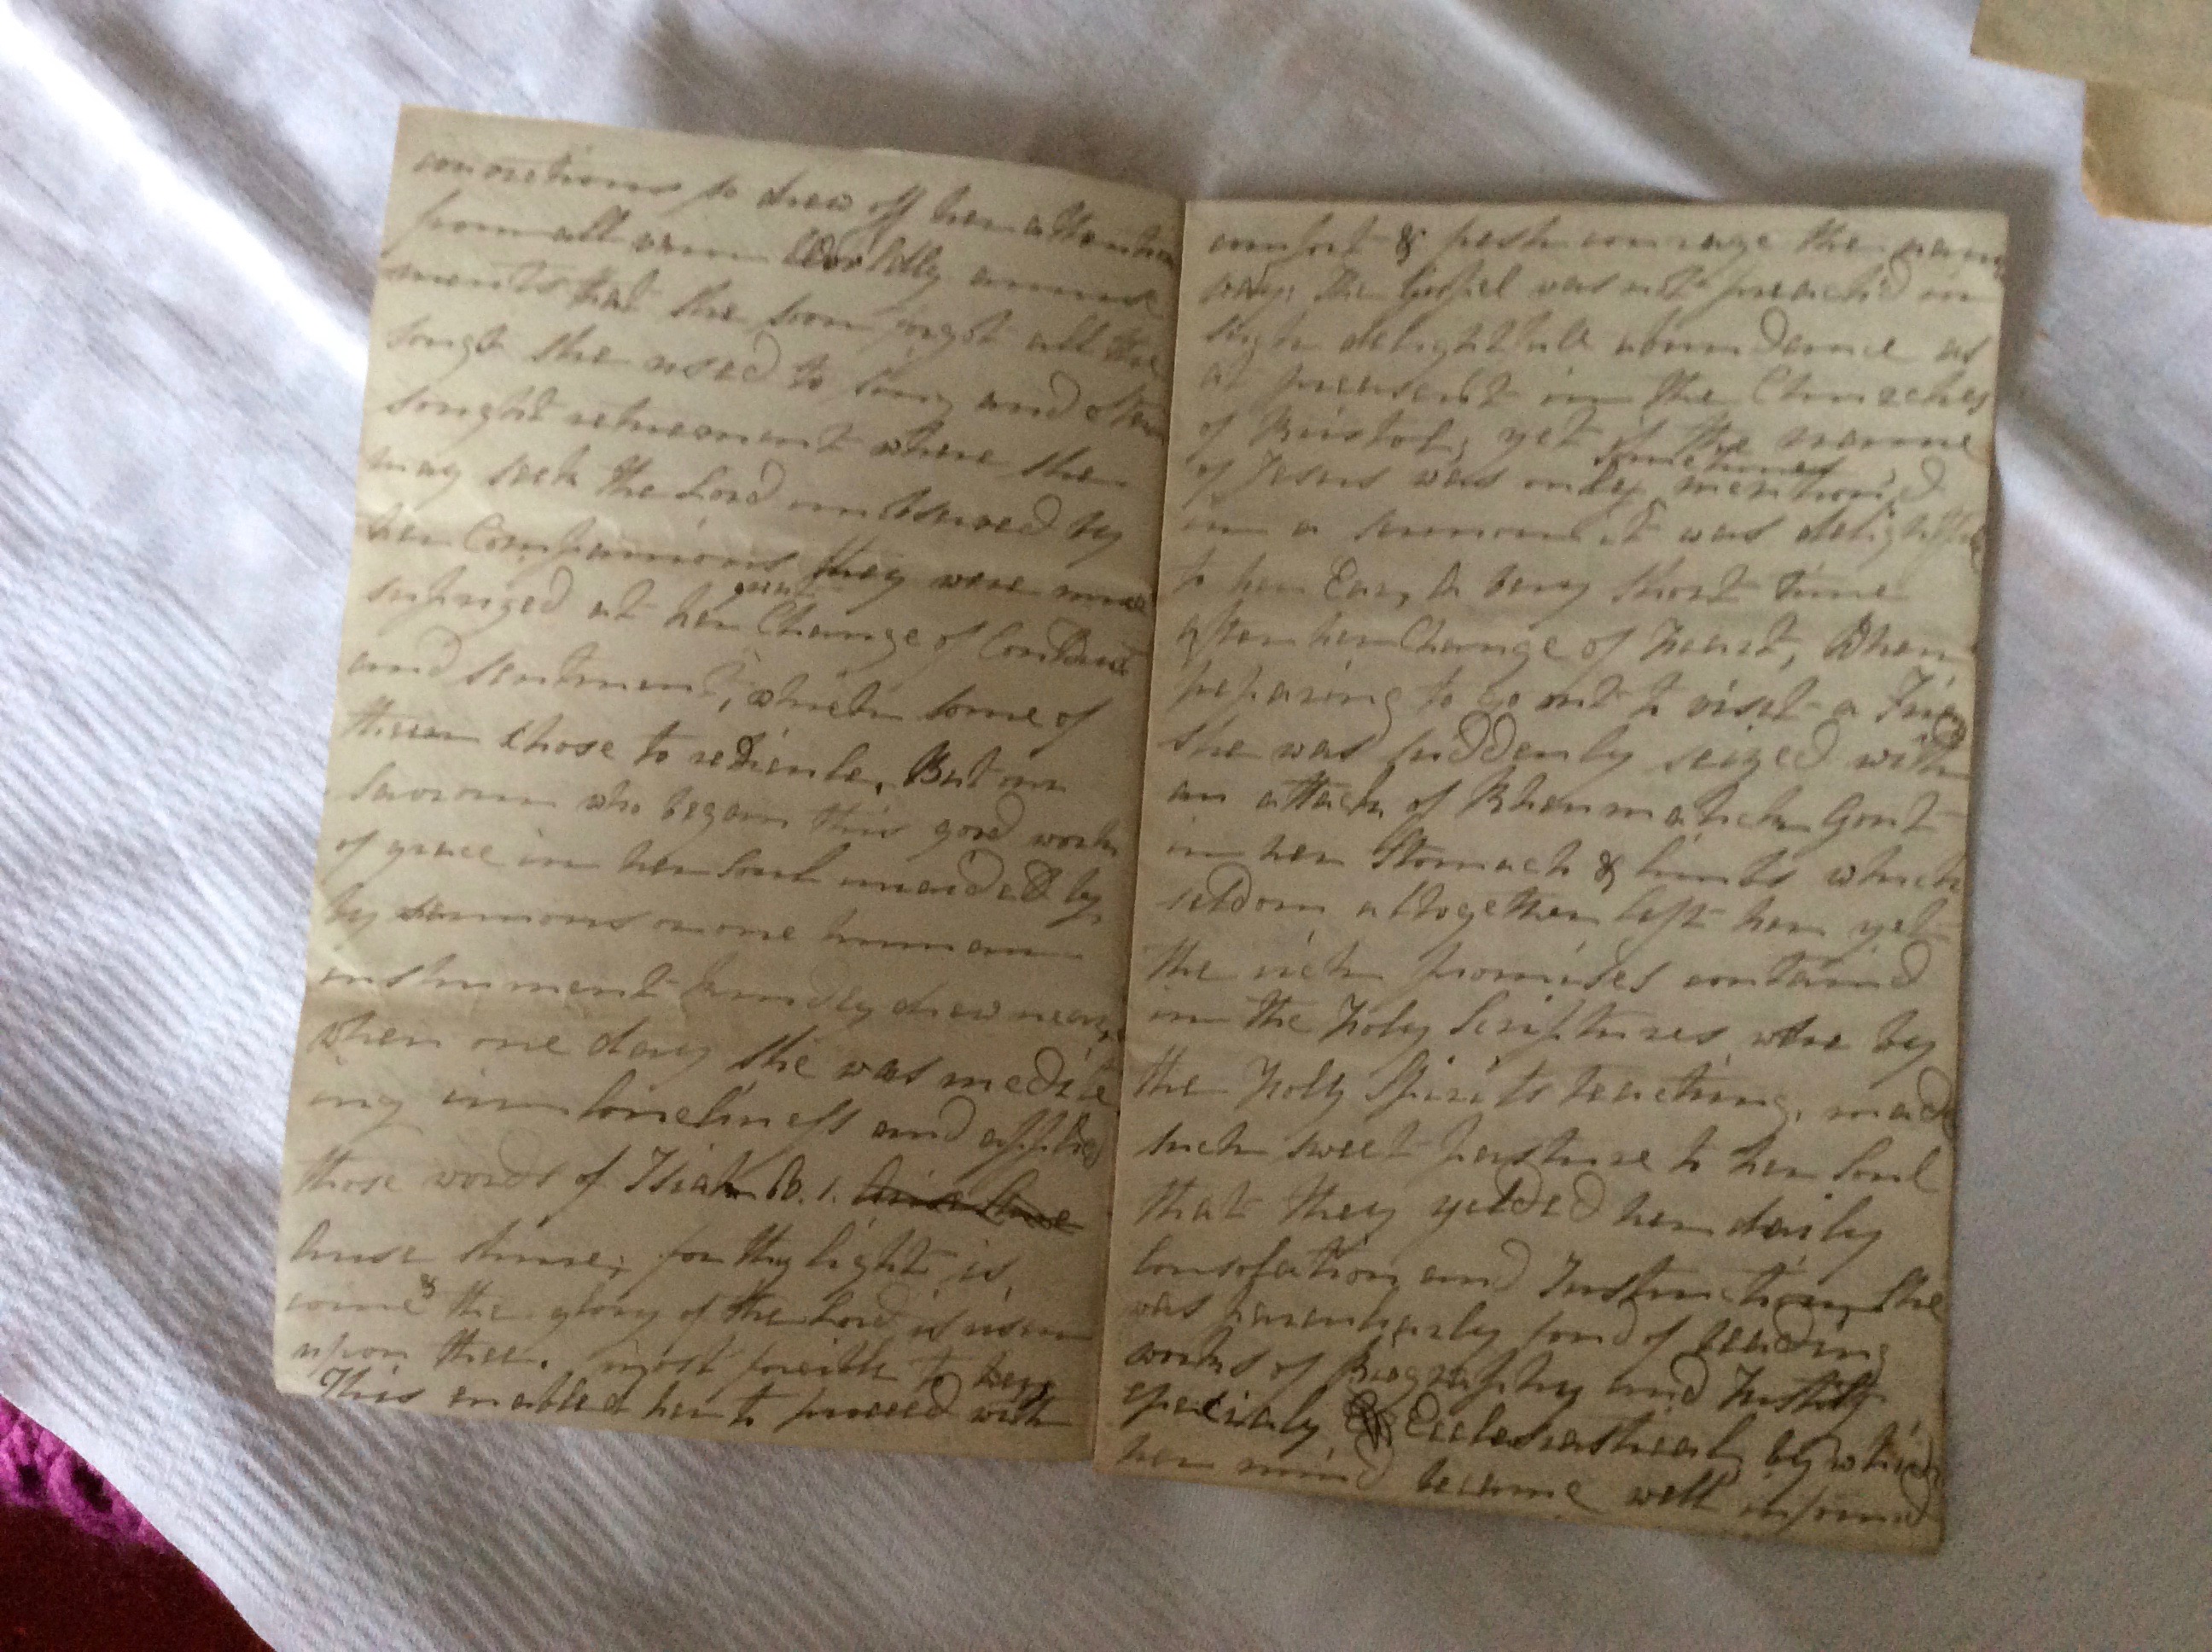 convictions so drew off her attention
from all vain Worldly amuse
ments that she soon forgot all the
songs she used to sing and often
sought retirement where she
may seek the Lord unobserved by
her Companions they were much
suprized at her great Change of Conduct
and sentiment, which some of
them chose to redicule, But our
Saviour who began this good work
of grace in her soul unaided by
by sermons or one human
instrument kindly drew near,
when one day she was meditat
ing in loneliness and applied
those words of Isiah 60.1. Arise shine
Arise shine, for thy light is
come & the glory of the Lord is risen
upon thee. most to
This enabled her to proceed with
comfort & fresh courage the narrow
way, the Gospel was not preach'd in
such delightfull abundance as
at present in the Churches
of Bristol, yet if the name
of Jesus was only sometimes mention'd
in a sermon it was delightful
to her Ear, A very short time
after her Change of Heart, When
preparing to go out to visit a Friend
she was suddenly seized with
an attack of Rheumatick Gout
in her Stomach & limbs which
seldom altogether left her yet
the rich promises contain'd
in the Holy Scriptures were by
the Holy Spirits teaching, made
such sweet pasture to her Soul
that they yelded her daily
Consolation and Instruction, She
was peculiarly fond of reading
works of Biography and History
specialy Ecclesiastical, by which
her mind became well informed